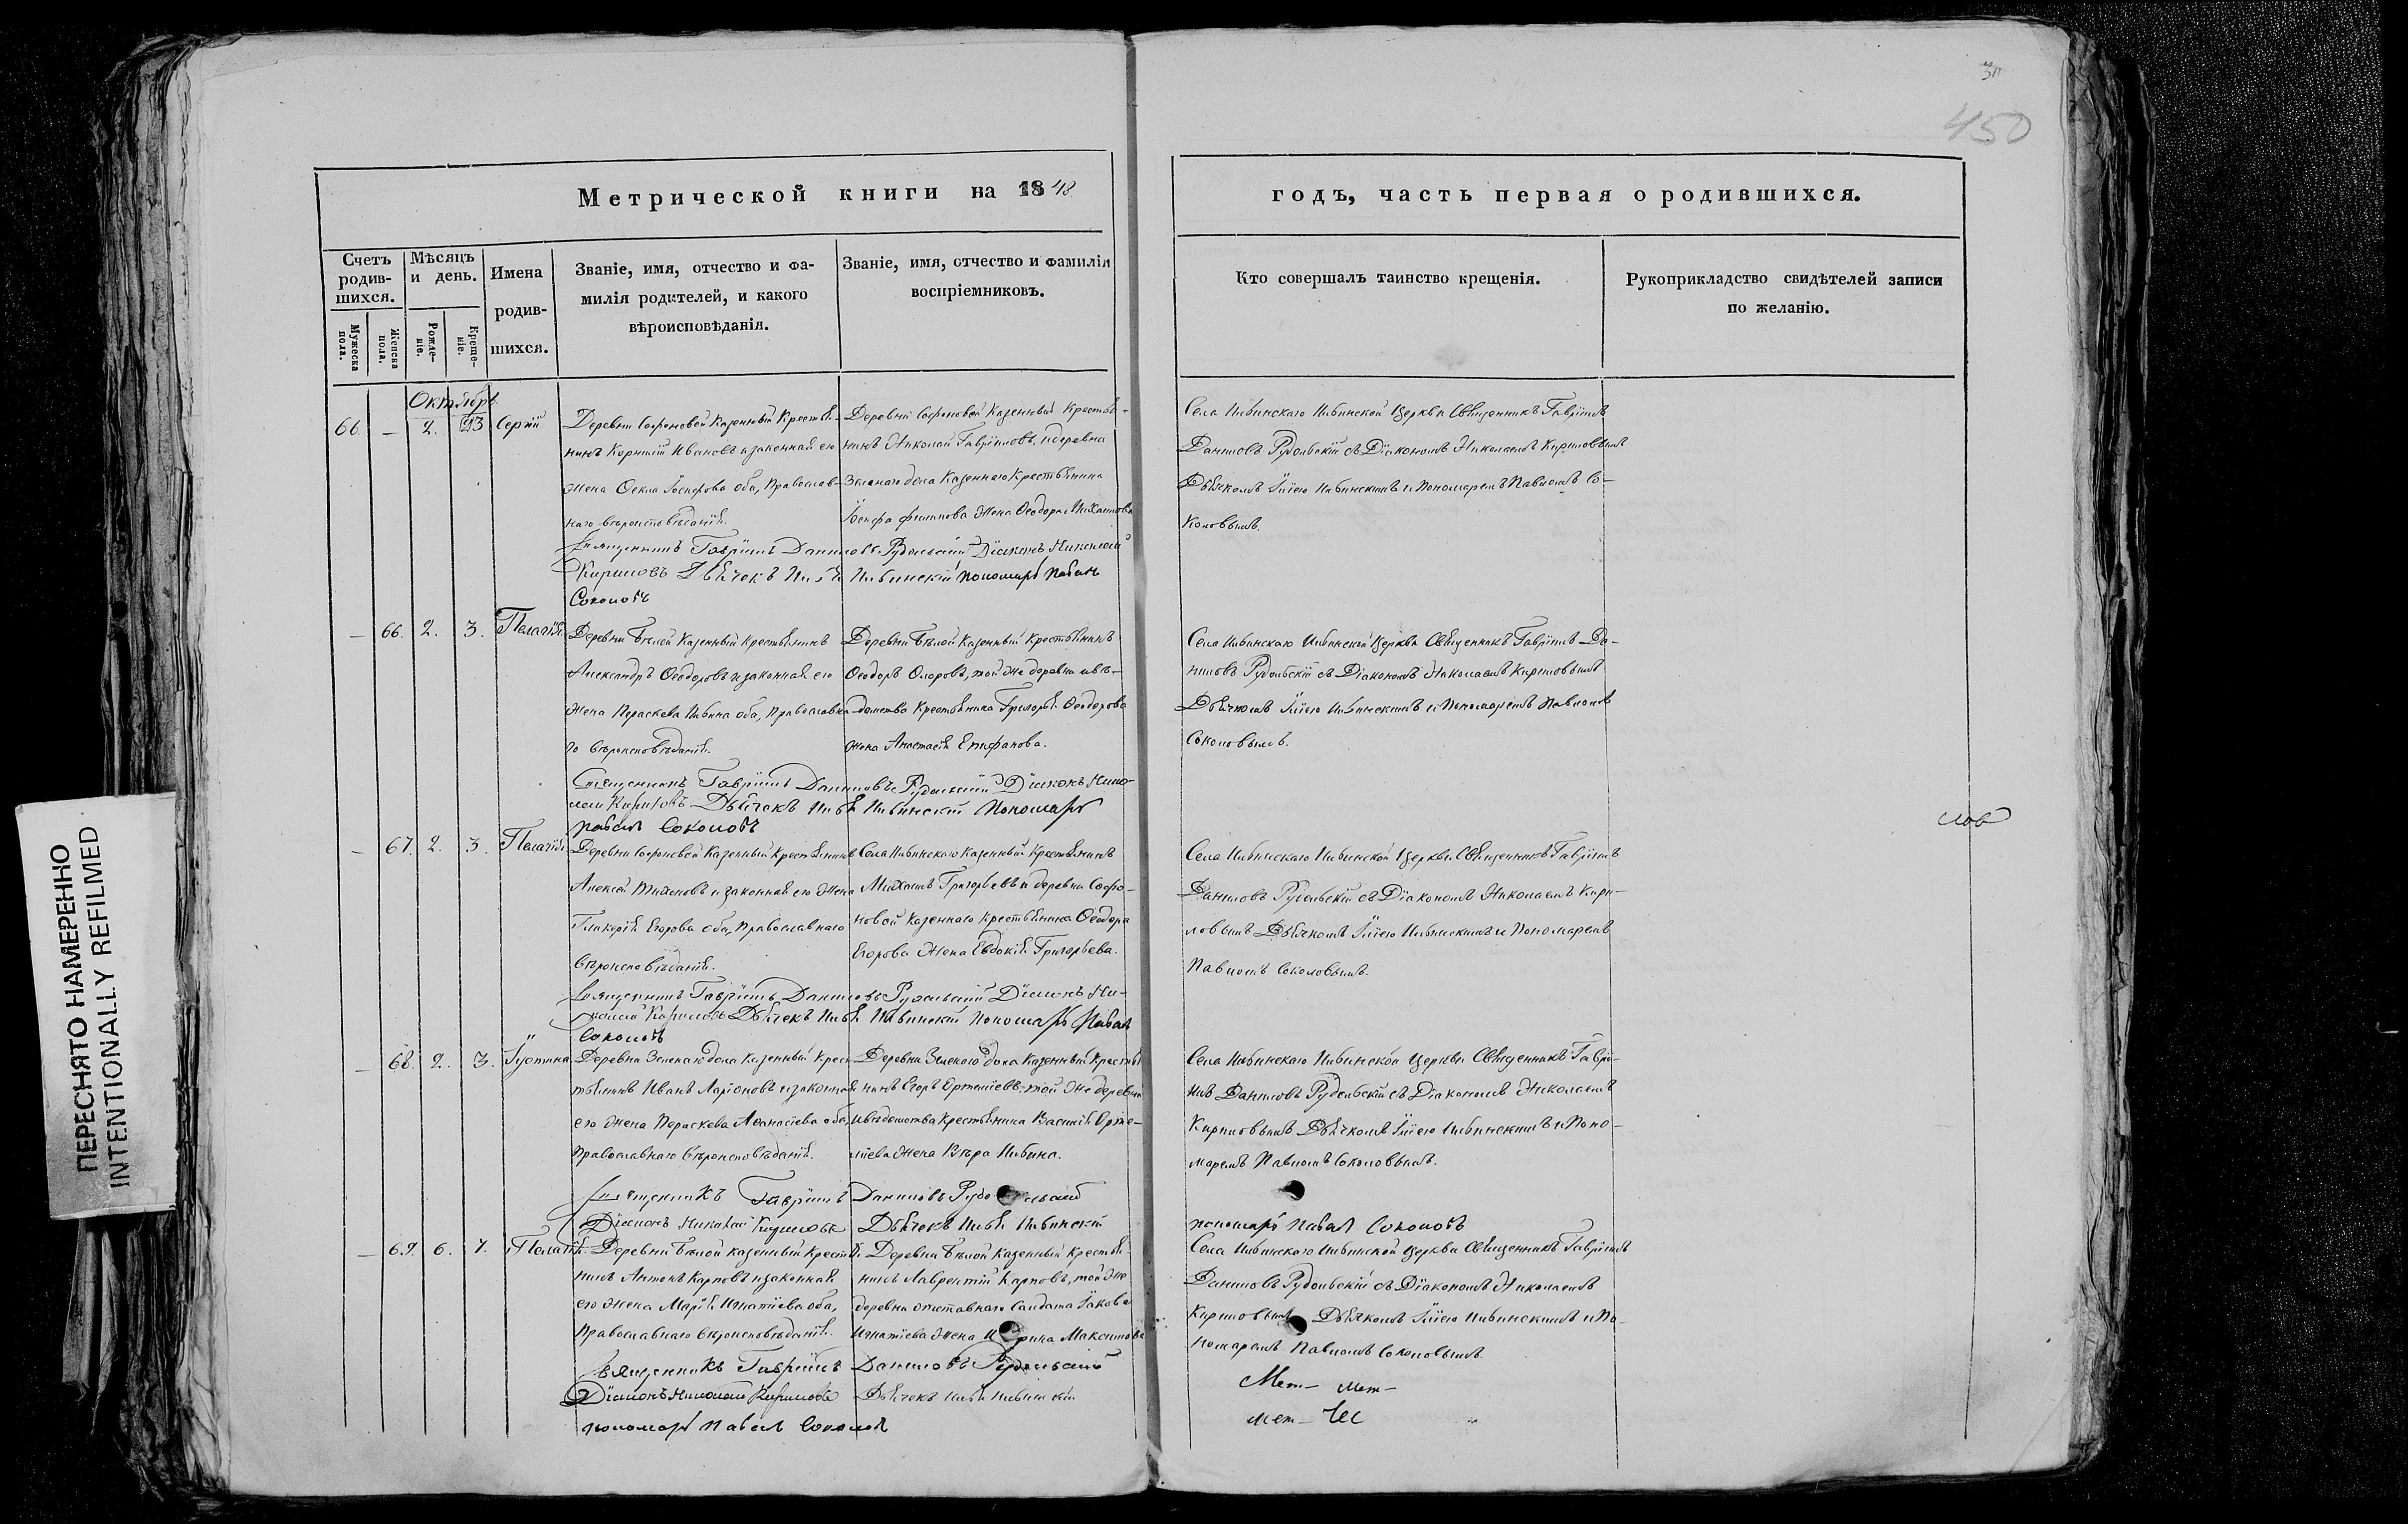 450
Метрической книги на 1848
годъ, часть первая о родившихся.
Счетъ родив-шихся.
Мѣсяцъ и день.
Имена родив-шихся.
Званіе, имя, отчество и фа-
милія родителей, и какого
вѣроисповѣданія.
Званіе, имя, отчество и фамилія
воспріемниковъ.
Кто совершалъ таинство крещенія.
Рукоприкладство свидѣтелей записи
по желанію.
Мужеска пола.
Женска пола.
Рожде-ніе.
Креще-ніе.
Октябрь
66. — 2. 3 Сергій
Деревни Софоновой Казенный Крестья-
нинъ Корнилій Ивановъ и законная его
жена Ѳекла Іосифова оба, Православ-
наго вѣроисповѣданія.
Деревни Софоновой Казенный Крестья-
нинъ Николай Гавріиловъ, и деревни
Зеленаго дола Казеннаго Крестьянина
Іосифа Филипова жена Ѳеодора Михаилова
Села Ильинскаго Ильинской Церкви Священникъ Гавріилъ
Даниловъ Рудольскій съ Діакономъ Николаемъ Кириловымъ
Дьячкомъ Иліею Ильинскимъ и Пономаремъ Павломъ Со-
коловымъ.
Священникъ Гавріилъ Даниловъ Рудольскій Діаконъ Николай
Кириловъ Дьячекъ Илья Ильинскій Пономарь Павелъ
Соколовъ
— 66. 2. 3. Пелагія
Деревни Бѣлой Казенный Крестьянинъ
Александръ Ѳеодоровъ и законная его
жена Параскева Ильина оба, Православна-
го вѣроисповѣданія.
Деревни Бѣлой Казенный Крестьянинъ
Ѳеодоръ Ѳлоровъ, той же деревни и вѣ-
домства Крестьянина Григорья Ѳеодорова
жена Анастасія Епифанова.
Села Ильинскаго Ильинской Церкви Священникъ Гавріилъ Да-
ниловъ Рудольскій съ Діакономъ Николаемъ Кириловымъ
Дьячкомъ Иліею Ильинскимъ и Пономаремъ Павломъ
Соколовымъ.
Священникъ Гавріилъ Даниловъ Рудольскій Діаконъ Нико-
лай Кириловъ Дьячекъ Илья Ильинскій Пономарь
Павелъ Соколовъ
— 67. 2. 3. Пелагія
Деревни Софоновой Казенный Крестьянинъ
Алексей Тихоновъ и законная его жена
Гликерія Егорова оба, Православнаго
вѣроисповѣданія.
Села Ильинскаго Казенный Крестьянинъ
Михаилъ Григорьевъ и деревни Софо-
новой Казеннаго Крестьянина Ѳеодора
Егорова жена Евдокія Григорьева.
Села Ильинскаго Ильинской Церкви Священникъ Гавріилъ
Даниловъ Рудольскій съ Діакономъ Николаемъ Кири-
ловымъ Дьячкомъ Иліею Ильинскимъ и Пономаремъ
Павломъ Соколовымъ.
Священникъ Гавріилъ Даниловъ Рудольскій Діаконъ Ни-
колай Кириловъ Дьячекъ Илья Ильинскій Пономарь Павелъ
Соколовъ
— 68. 2. 3. Іустина
Деревни Зеленаго дола Казенный Крес-
тьянинъ Иванъ Ларіоновъ и законная
его жена Параскева Аѳанасіева оба,
Православнаго вѣроисповѣданія.
Деревни Зеленаго дола Казенный Крестья
нинъ Егоръ Артеміевъ, той же деревни
и вѣдомства Крестьянина Василія Арте-
міева жена Вѣра Ильина.
Села Ильинскаго Ильинской Церкви Священникъ Гаврі-
илъ Даниловъ Рудольскій съ Діакономъ Николаемъ
Кириловымъ Дьячкомъ Иліею Ильинскимъ и Поно-
маремъ Павломъ Соколовымъ.
Священникъ Гавріилъ Даниловъ Рудольскій
Діаконъ Николай Кириловъ Дьячекъ Илья Ильинскій
пономарь Павелъ Соколовъ
— 69. 6. 7. Пелагія
Деревни Бѣлой Казенный Крестья
нинъ Антонъ Карповъ и законная
его жена Марія Игнатіева оба,
Православнаго вѣроисповѣданія.
Деревни Бѣлой Казенный Крестья-
нинъ Лаврентій Карповъ, той же
деревни отставнаго Салдата Іакова
Игнатіева жена Максимова
Села Ильинскаго Ильинской Церкви Священникъ Гавріилъ
Даниловъ Рудольскій съ Діакономъ Николаемъ
Кириловымъ Дьячкомъ Иліею Ильинскимъ и По-
номаремъ Павломъ Соколовымъ.
Священникъ Гавріилъ Даниловъ Рудольскій
Діаконъ Николай Кириловъ Дьячекъ Илья Ильинскій
пономарь Павелъ Соколовъ
Мет- мет-
мет-
ПЕРЕСНЯТО НАМЕРЕННО
INTENTIONALLY REFILMED